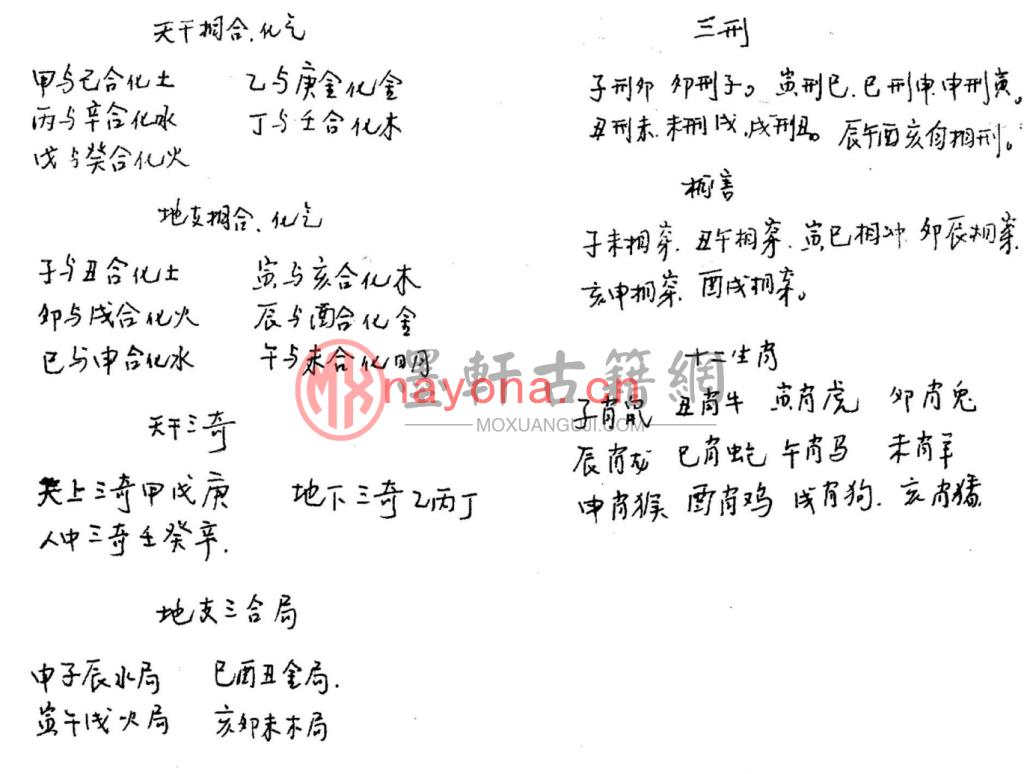 天干相合.化气
甲与己合化土 乙与庚金化金
丙与辛合化水 丁与壬合化木
戊与癸合化火
地支相合.化气
子与丑合化土 寅与亥合化木
卯与戌合化火 辰与酉合化金
巳与申合化水 午与未合化
天干三奇
天上三奇甲戊庚 地下三奇乙丙丁
人中三奇壬癸辛.
地支三合局
申子辰水局 巳酉丑金局.
寅午戌火局 亥卯未木局
三刑
子刑卯 卯刑子。寅刑巳.巳刑申.申刑寅。
丑刑未.未刑戌.戌刑丑。辰午酉亥自相刑。
相害
子未相穿.丑午相穿.寅巳相冲 卯辰相穿.
亥申相穿.酉戌相穿。
十二生肖
子肖鼠 丑肖牛 寅肖虎 卯肖兔
辰肖龙 巳肖蛇 午肖马 未肖羊
申肖猴 酉肖鸡 戌肖狗.亥肖猪
墨軒古籍網
nayona.cn
MOXUANGUJI.COM